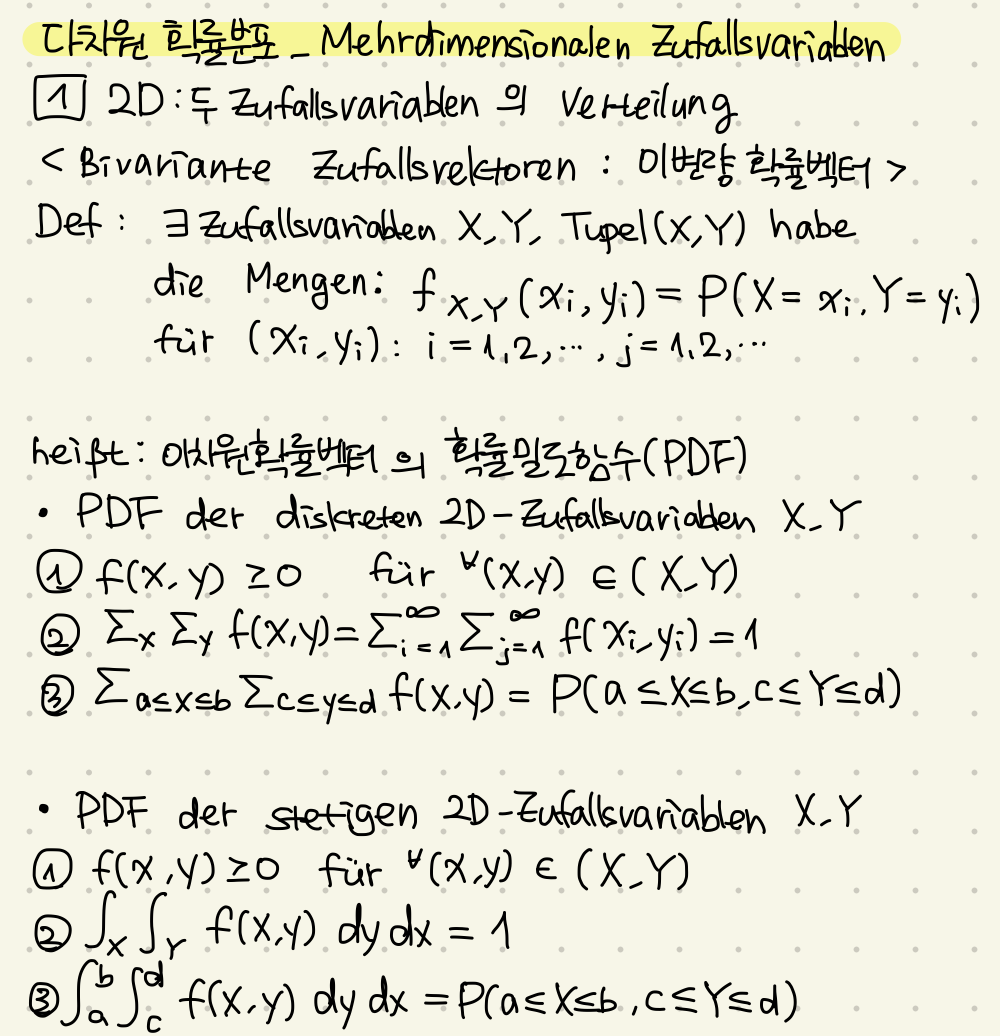 다차원 확률분포 - Mehrdimensionalen Zufallsvariablen
1 2D: 두 Zufallsvariablen 의 Verteilung
< Bivariante Zufallsvektoren : 이변량 확률벡터 >
Def : ∃ Zufallsvariablen X, Y, Tupel(X,Y) habe
die Mengen: f_{X,Y}(x_i, y_i) = P(X = x_i, Y = y_i)
für (x_i, y_i) : i = 1,2,⋯, j = 1,2,⋯
heißt: 이차원확률벡터 의 확률밀도함수(PDF)
• PDF der diskreten 2D-Zufallsvariablen X, Y
① f(x, y) ≥ 0 für ∀(x,y) ∈ (X, Y)
② ∑_x ∑_y f(x,y) = ∑_{i=1}^∞ ∑_{j=1}^∞ f(x_i, y_i) = 1
③ ∑_{a≤x≤b} ∑_{c≤y≤d} f(x,y) = P(a ≤ X ≤ b, c ≤ Y ≤ d)
• PDF der stetigen 2D-Zufallsvariablen X, Y
① f(x, y) ≥ 0 für ∀(x,y) ∈ (X, Y)
② ∫_X ∫_Y f(x,y) dy dx = 1
③ ∫_a^b ∫_c^d f(x,y) dy dx = P(a ≤ X ≤ b, c ≤ Y ≤ d)